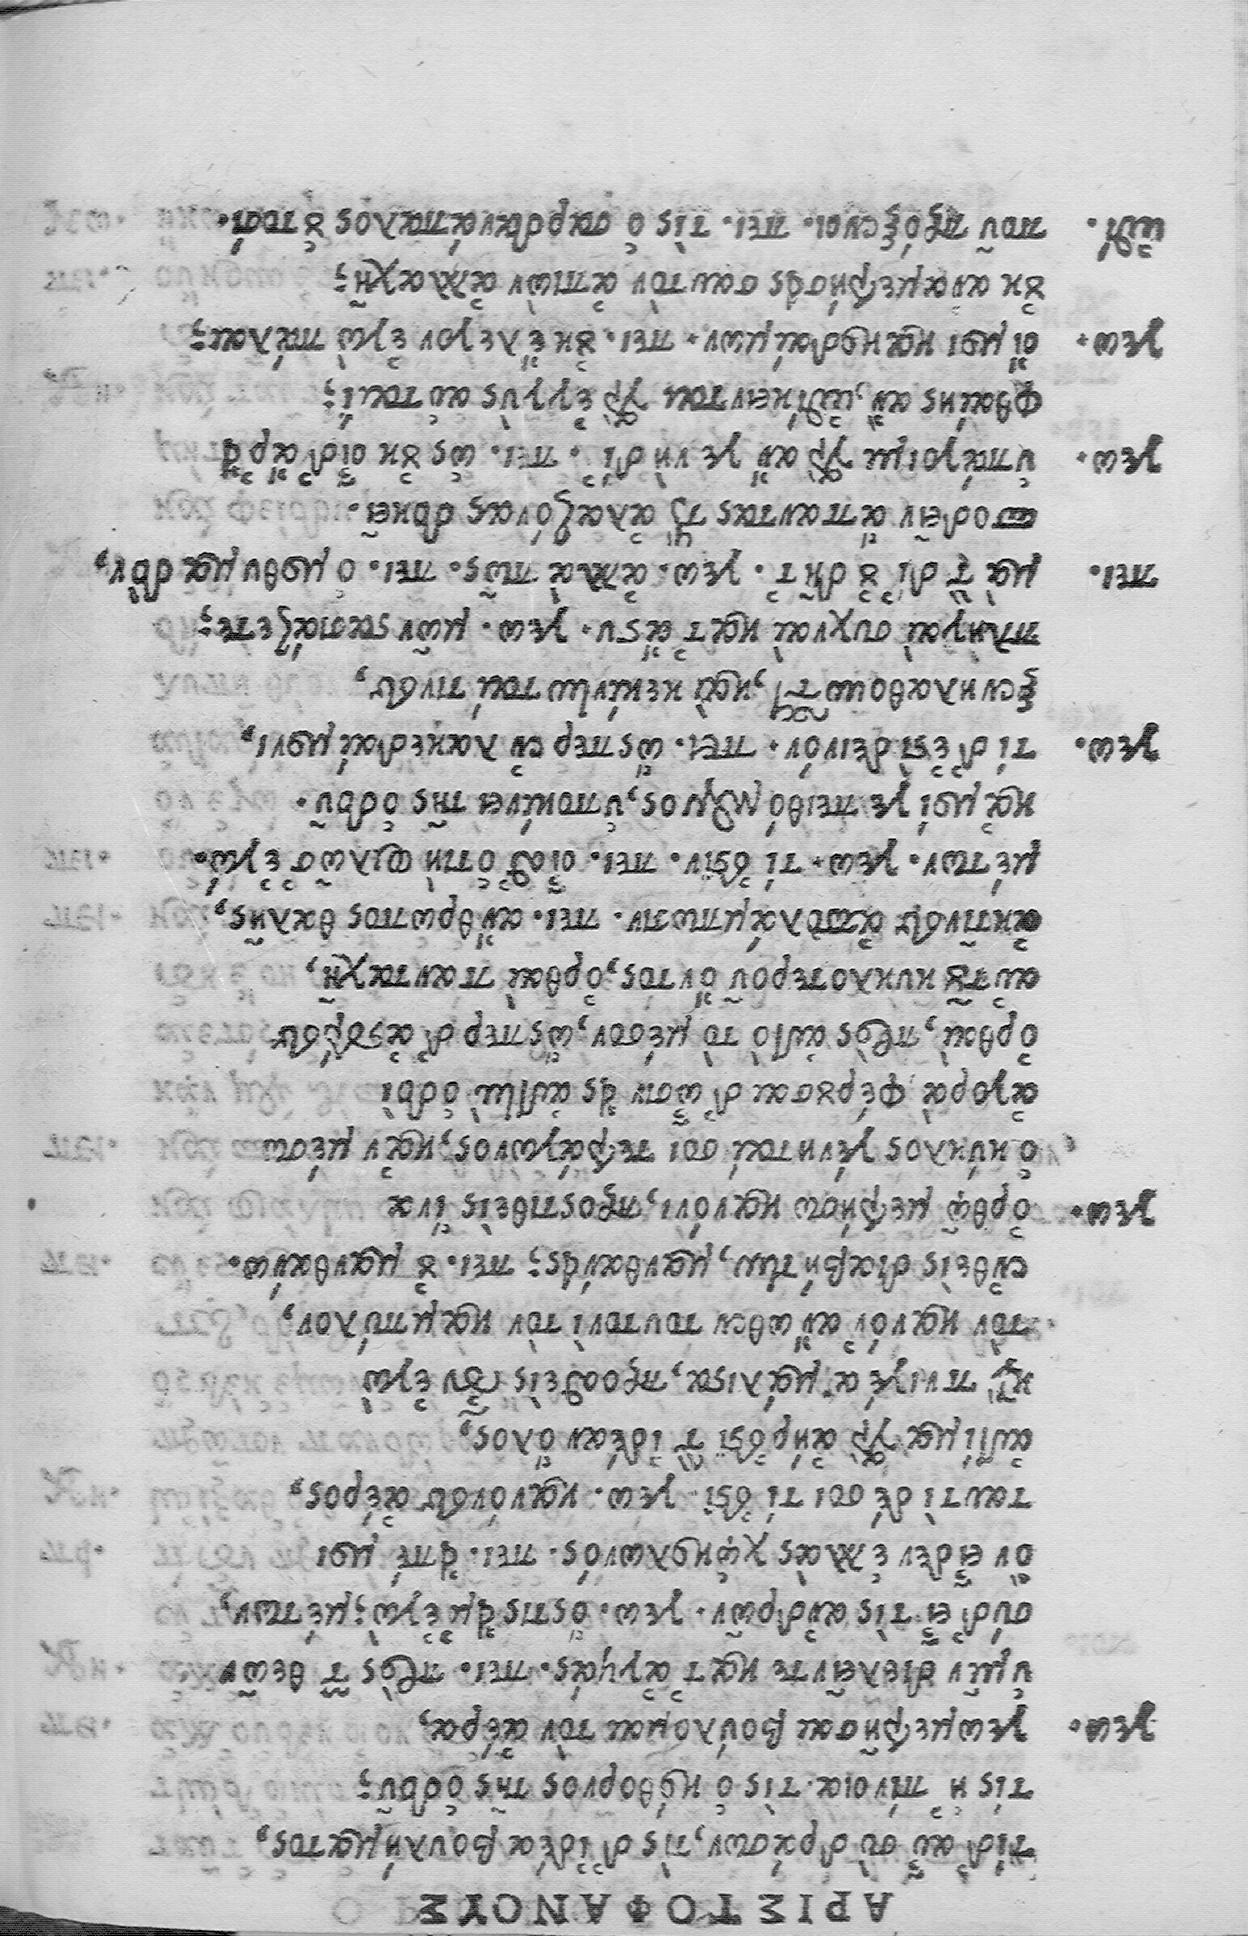 ΑΡΙΣΤΟΦΑΝΟΥΣ
τί δ᾽ αὖ σὺ δράσων, τίς δ᾽ ἰδέα βουλήματος,
τίς ἡ πίνοια· τίς ὁ κόθορνος τῆς ὁδοῦ;
γεω. γεωμετρῆσαι βούλομαι τὸν ἀέρα,
ὑμῖν διελεῖν τε κατ᾽ ἀγυιάς. πει. πρὸς τ θεῶν
σὺ δ᾽ εἶ τίς ἀνδρῶν. γεω. ὅστις εἴμ᾽ ἐγώ; μέτων,
ὃν οἶδεν ἑλλὰς χὠ κολωνός. πει. εἰπέ μοι
ταυτὶ δέ σοι τί ἐστι. γεω. κανόνες ἀέρος,
αὐτίκα γὰρ ἀήρ ἐστι τ ἰδέαν ὅλος,
κτ πνιγέα μάλιστα, προσθεὶς οὖν ἐγὼ
τὸν κανόν᾽ ἄνωθεν τουτονὶ τὸν καμπύλον,
ἐνθεὶς διαβήτην, μανθάνεις; πει. οὐ μανθάνω.
γεω. ὀρθῷ μετρήσω κανόνι, προστιθεὶς ἵνα
ὁ κύκλος γένηταί σοι τετράγωνος, κἀν μέσῳ
ἀγορὰ φέρουσαι δ᾽ ὦσιν εἰς αὐτὴν ὁδοὶ
ὀρθαὶ, πρὸς αὐτὸ τὸ μέσον, ὥσπερ δ᾽ ἀστέρος
αὐτοῦ κυκλοτεροῦς ὄντος, ὀρθαὶ πανταχῆ,
ἀκτῖνες ἀπολάμπωσιν. πει. ἄνθρωπος θαλῆς,
μέτων. γεω. τί ἐστιν. πει. οἶσθ᾽ ὁτιὴ φιλῶ σ᾽ ἐγώ.
κἀμοί γε πειθόμενος, ὑποκίνει τῆς ὁδοῦ.
γεω. τί δ᾽ ἐστὶ δεινόν. πει. ὥσπερ ἐν λακεδαίμονι,
ξενηλατοῦνται, καὶ κεκίνηνταί τινες,
πληγαὶ συχναὶ κατ᾽ ἄστυ. γεω. μῶν στασιάζετε;
πει. μὰ τ δί᾽ οὐ δῆτ᾽. γεω. ἀλλὰ πῶς. πει. ὁμοθυμαδὸν,
σποδεῖν ἅπαντας τοὺς ἀλαζόνας δοκεῖ.
γεω. ὑπάγοιμι γὰρ ἄν γε νὴ δί᾽. πει. ὡς οὐκ οἶδ᾽ ἄρ᾽ εἰ
φθαίης ἄν, ἐπίκεινται γὰρ ἐγγὺς αὑταί;
γεω. οἴμοι κακοδαίμων. πει. οὐκ ἔλεγον ἐγὼ πάλαι;
οὐκ ἀναμετρήσεις σαυτὸν ἀπιὼν ἀλλαχῆ;
ἐπί. ποῦ πρόξενοι. πει. τίς ὁ σαρδανάπαλος οὑτοσί.